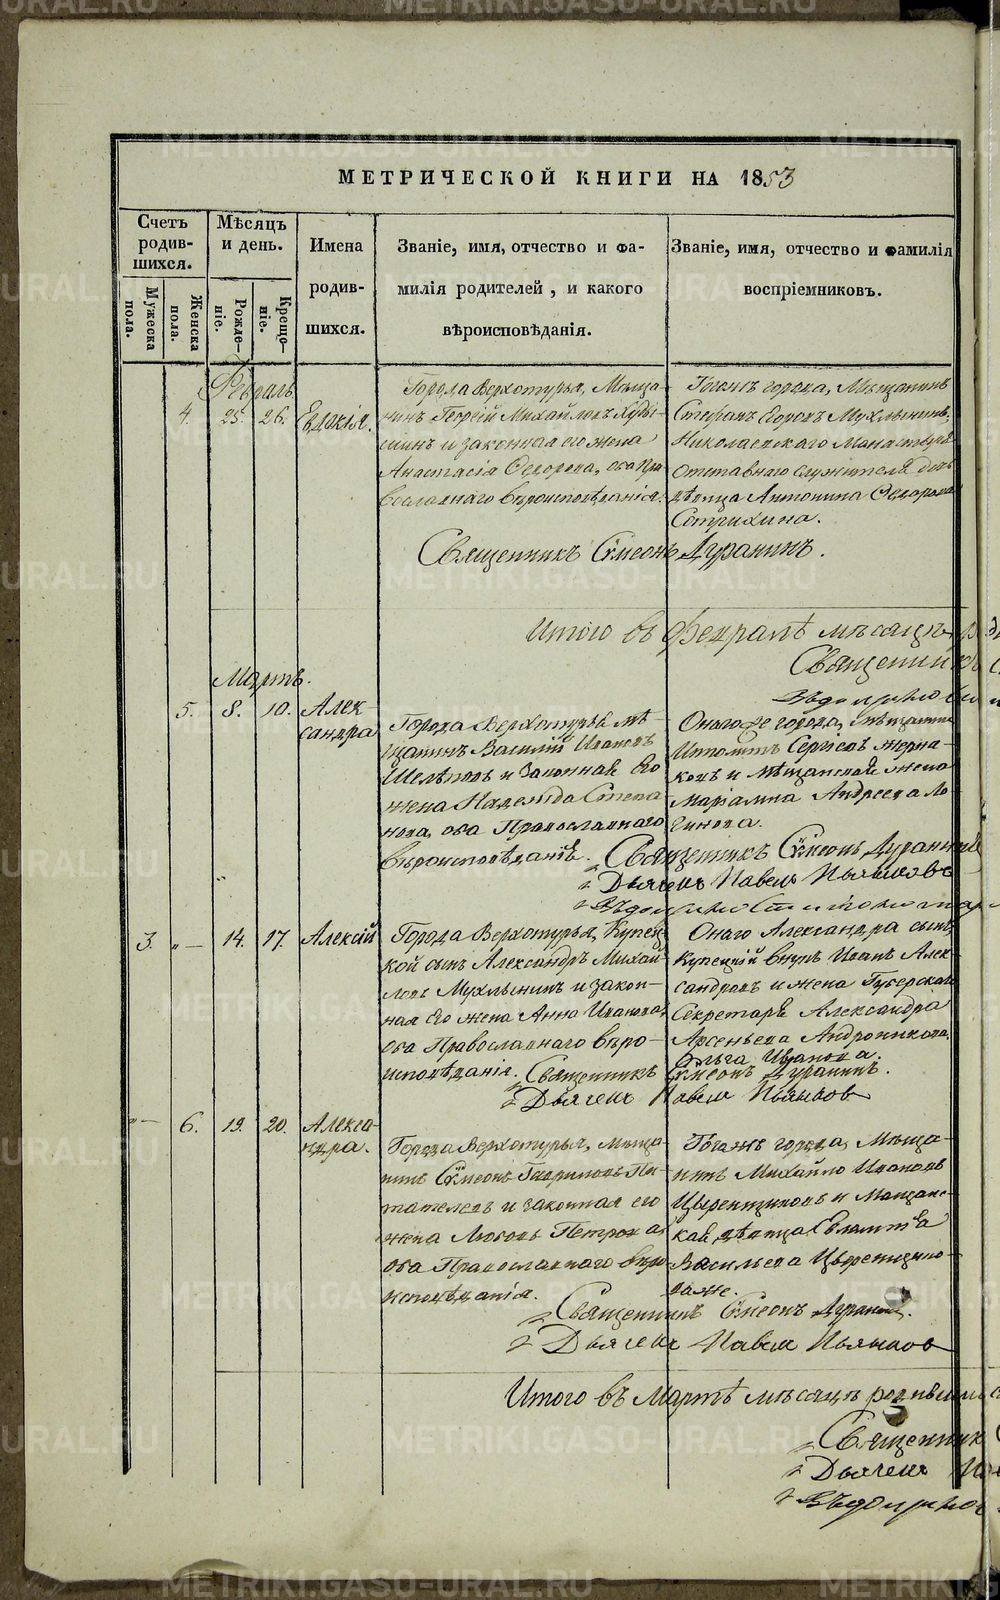 МЕТРИЧЕСКОЙ КНИГИ НА 1853
Счетъ родив-шихся.
Мужеска пола.
Женска пола.
Мѣсяцъ и день.
Рожде-ніе.
Креще-ніе.
Имена
родив-
шихся.
Званіе, имя, отчество и фа-
милія родителей, и какого
вѣроисповѣданія.
Званіе, имя, отчество и фамилія
воспріемниковъ.
Февраль
4. 25. 26. Евдокія.
Города Верхотурья, Мѣща-
нинъ Георгій Михайловъ
и законная его жена
Анастасія Ѳедорова, оба Пра
вославнаго вѣроисповѣданія.
Тогожъ города, Мѣщанинъ
Стефанъ Егоровъ Мухлынинъ,
Николаевскаго Монастыря
Отставнаго служителя дочь
дѣвица Антонина Ѳедорова
Священникъ Сѵмеонъ Дуранинъ.
Итого въ Февралѣ мѣсяцѣ
Священникъ
Мартъ.
5. 8. 10. Алек-
сандра
Города Верхотурья мѣ
щанинъ Василій Ивановъ
и Законная Его
жена Надежда Степа
нова, оба Православнаго
вѣроисповѣданія.
Онаго же города, мѣщанинъ
Ипполитъ Сергѣевъ Жерна-
ковъ и Мѣщанская жена
Маріамна Андреева Ло-
гинова.
Священникъ Сѵмеонъ Дуранинъ
Дьячекъ Павелъ Пьянковъ
3. "— 14. 17. Алексій
Города Верхотурья, Купец-
кой сынъ Александръ Михай
ловъ Мухлынинъ и закон-
ная Его жена Анна Иванова,
оба Православнаго вѣро-
исповѣданія.
Онаго Александра сынъ,
Купецкій внукъ Иванъ Алек-
сандровъ и жена Губерскаго
Секретаря Александра
Арсеньева Андроникова
Ольга Иванова.
Священникъ Сѵмеонъ Дуранинъ.
Дьячекъ Павелъ Пьянковъ
"— 6. 19. 20. Алекса-
ндра.
Города Верхотурья, мѣща-
нинъ Сѵмеонъ Гавриловъ Пи-
тателевъ и законная его
жена Любовь Петрова
оба Православнаго вѣро
исповѣданія.
Тогожъ города, Мѣща-
нинъ Михайло Ивановъ
и Мѣщанс-
кая дѣвица
Васильева
Священникъ Сѵмеонъ Дуранинъ.
Дьячекъ Павелъ Пьянковъ
Итого въ Мартѣ мѣсяцѣ
Священник
Дьячекъ